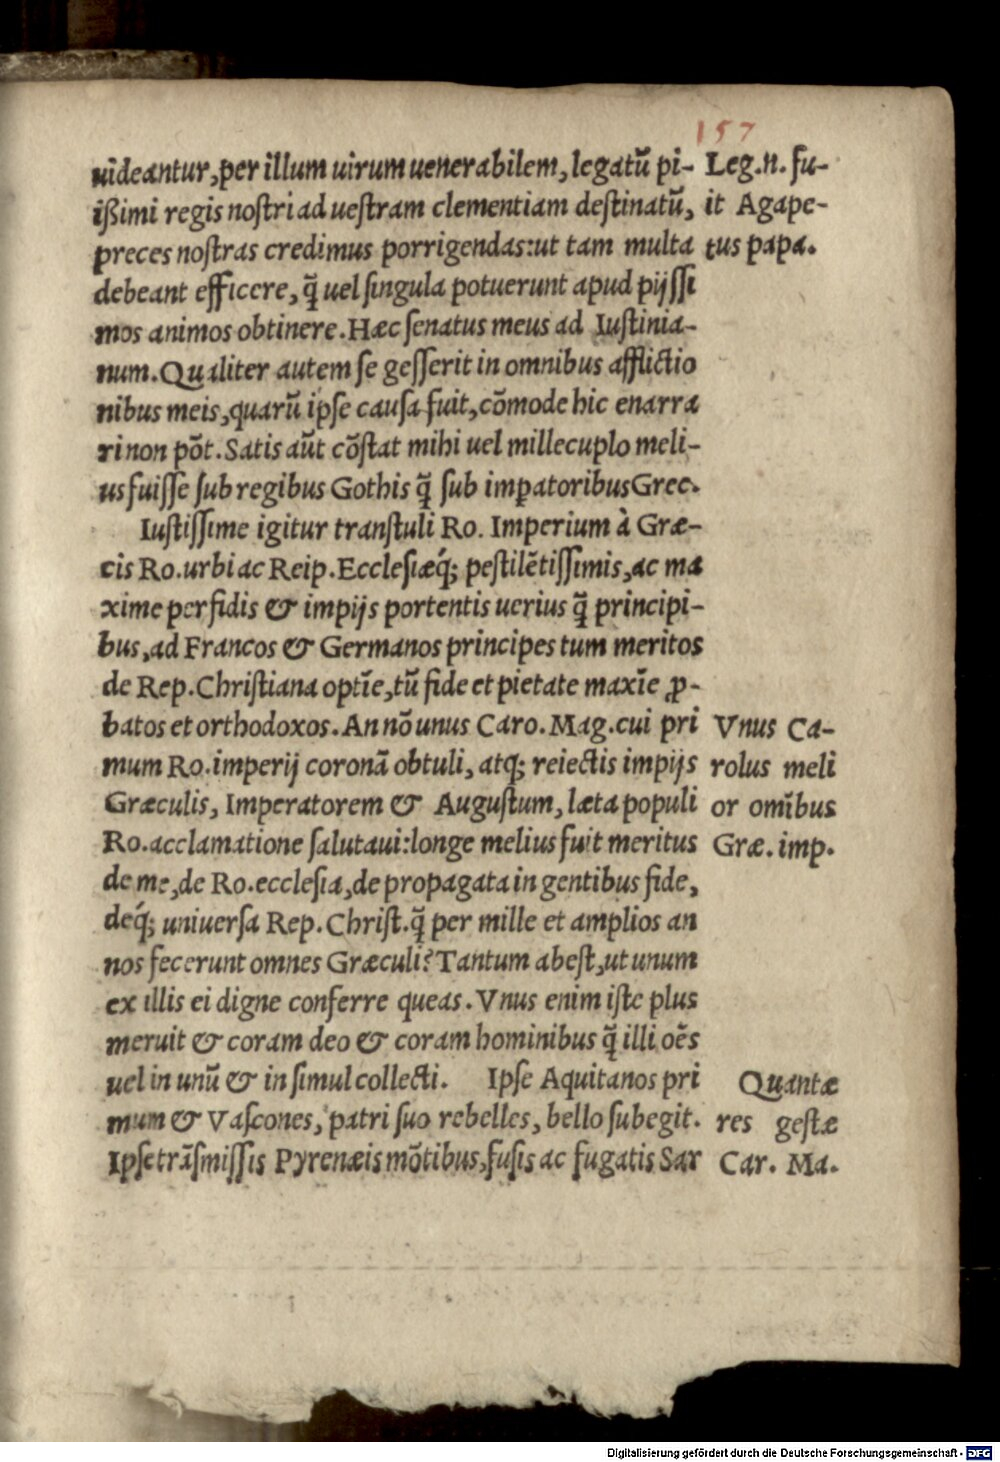 157
uideantur, per illum uirum uenerabilem, legatũ pi-
ißimi regis nostri ad uestram clementiam destinatũ,
preces nostras credimus porrigendas: ut tam multa
debeant efficere, q̃ uel singula potuerunt apud pijssi
mos animos obtinere. Hæc senatus meus ad Iustinia-
num. Qualiter autem se gesserit in omnibus afflictio
nibus meis, quarũ ipse causa fuit, cõmode hic enarra
ri non põt. Satis aũt cõstat mihi uel millecuplo meli-
us fuisse sub regibus Gothis q̃ sub imꝑatoribus Grec.
Iustissime igitur transtuli Ro. Imperium à Græ-
cis Ro. urbi ac Reip. Ecclesiæq́; pestilẽtissimis, ac ma
xime perfidis & impijs portentis uerius q̃ principi-
bus, ad Francos & Germanos principes tum meritos
de Rep. Christiana optĩe, tũ fide et pietate maxĩe ꝓ-
batos et orthodoxos. An nõ unus Caro. Mag. cui pri
mum Ro. imperij coronã obtuli, atq; reiectis impijs
Græculis, Imperatorem & Augustum, læta populi
Ro. acclamatione salutaui: longe melius fuit meritus
de me, de Ro. ecclesia, de propagata in gentibus fide,
deq́; uniuersa Rep. Christ. q̃ per mille et amplios an
nos fecerunt omnes Græculi? Tantum abest, ut unum
ex illis ei digne conferre queas. Vnus enim iste plus
meruit & coram deo & coram hominibus q̃ illi oẽs
uel in unũ & in simul collecti. Ipse Aquitanos pri
mum & Vascones, patri suo rebelles, bello subegit.
Ipse trãsmissis Pyrenæis mõtibus, fusis ac fugatis Sar
Leg. n. fu-
it Agape-
tus papa.
Vnus Ca-
rolus meli
or omĩbus
Græ. imp.
Quantæ
res gestæ
Car. Ma.
Digitalisierung gefördert durch die Deutsche Forschungsgemeinschaft - DFG